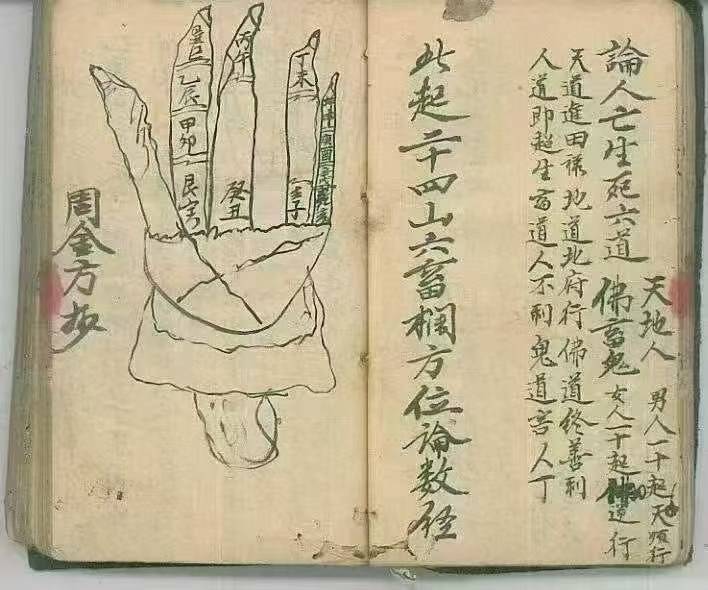 論人亡生死六道
天地人 男人一十起天順行
佛畜鬼 女人一十起佛逆行
天道進田祿地道北府行佛道終善利
人道即超生畜道人不利鬼道害人丁
此起二十四山六畜欄方位論數徑
巽巳
乙辰
甲卯
艮寅
丙午
癸丑
丁未
壬子
周金方抄